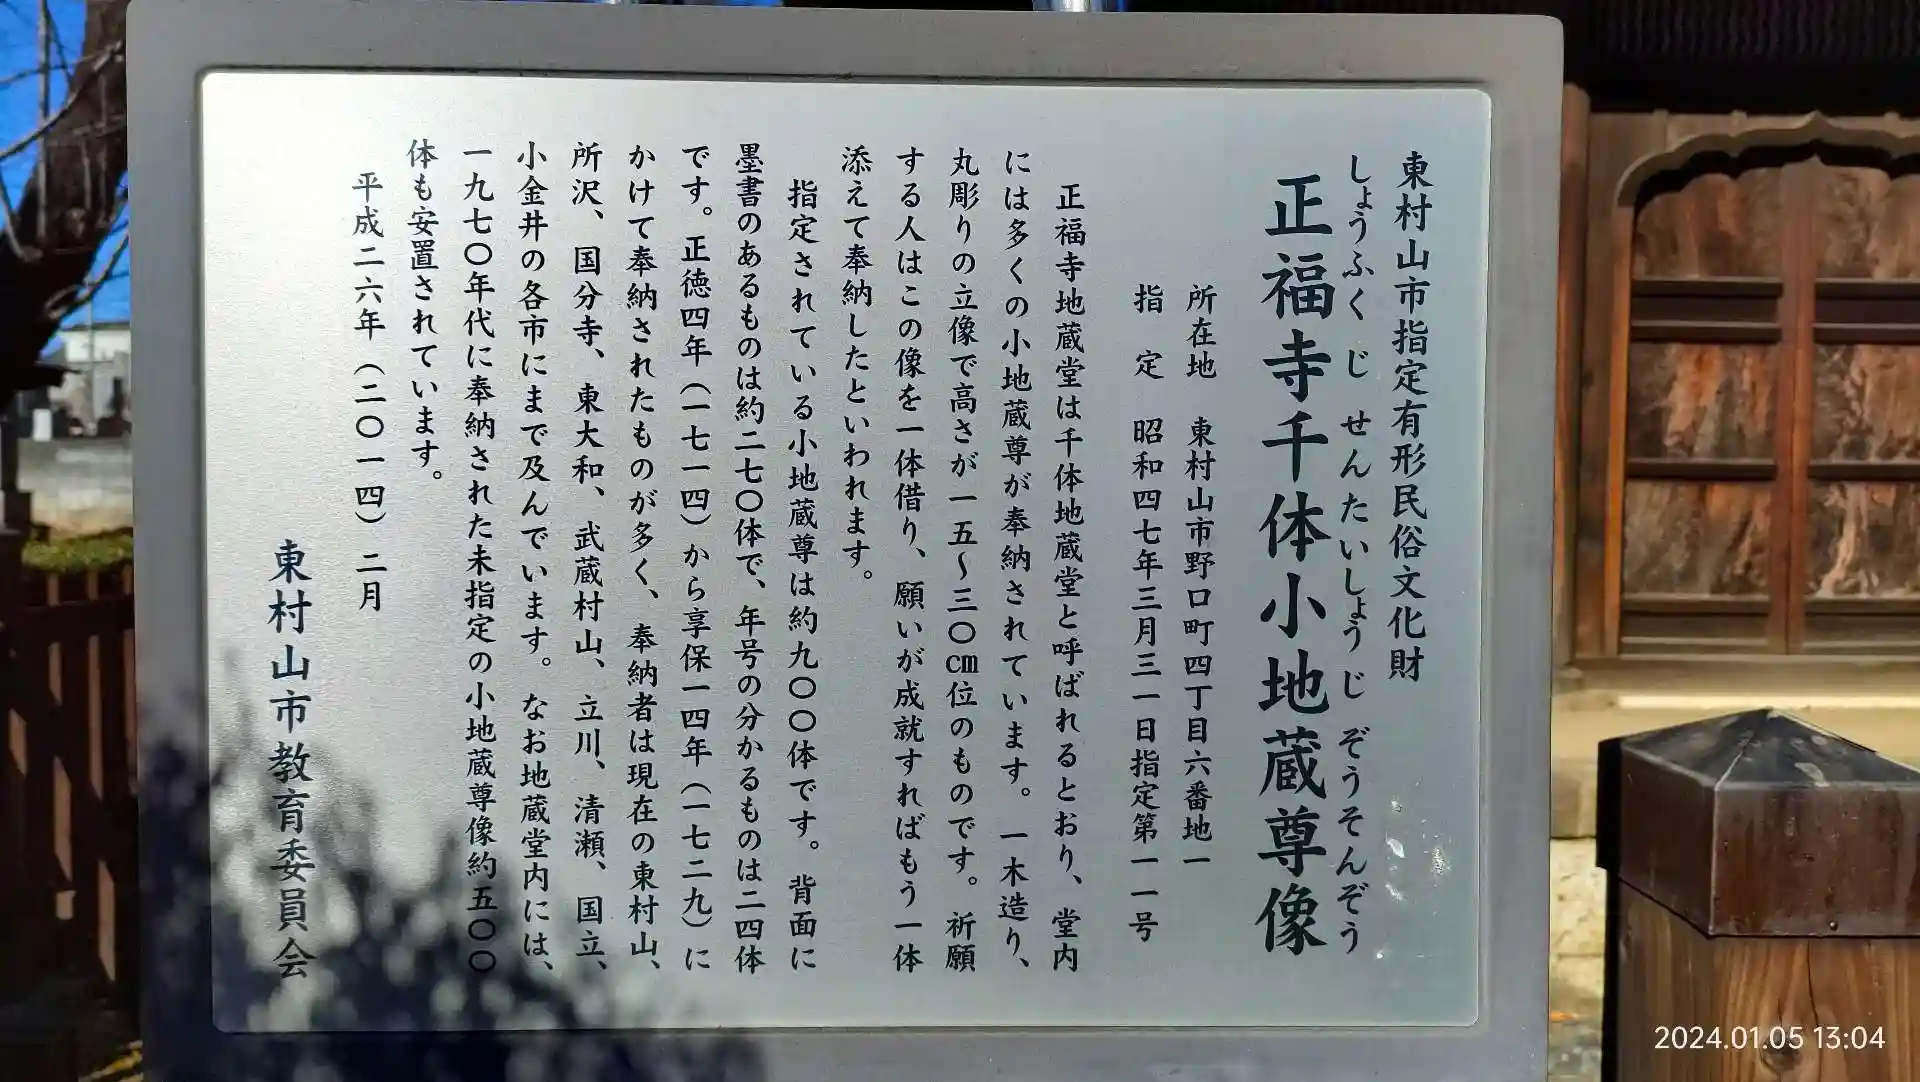 東村山市指定有形民俗文化財
しょうふくじ せんたいしょうじぞうそんぞう
正福寺千体小地蔵尊像
所在地 東村山市野口町四丁目六番地一
指 定 昭和四七年三月三一日指定第一一号
正福寺地蔵堂は千体地蔵堂と呼ばれるとおり、堂内
には多くの小地蔵尊が奉納されています。一木造り、
丸彫りの立像で高さが一五～三〇cm位のものです。祈願
する人はこの像を一体借り、願いが成就すればもう一体
添えて奉納したといわれます。
指定されている小地蔵尊は約九〇〇体です。背面に
墨書のあるものは約二七〇体で、年号の分かるものは二四体
です。正徳四年（一七一四）から享保一四年（一七二九）に
かけて奉納されたものが多く、奉納者は現在の東村山、
所沢、国分寺、東大和、武蔵村山、立川、清瀬、国立、
小金井の各市にまで及んでいます。なお地蔵堂内には、
一九七〇年代に奉納された未指定の小地蔵尊像約五〇〇
体も安置されています。
平成二六年（二〇一四）二月
東村山市教育委員会
2024.01.05 13:04